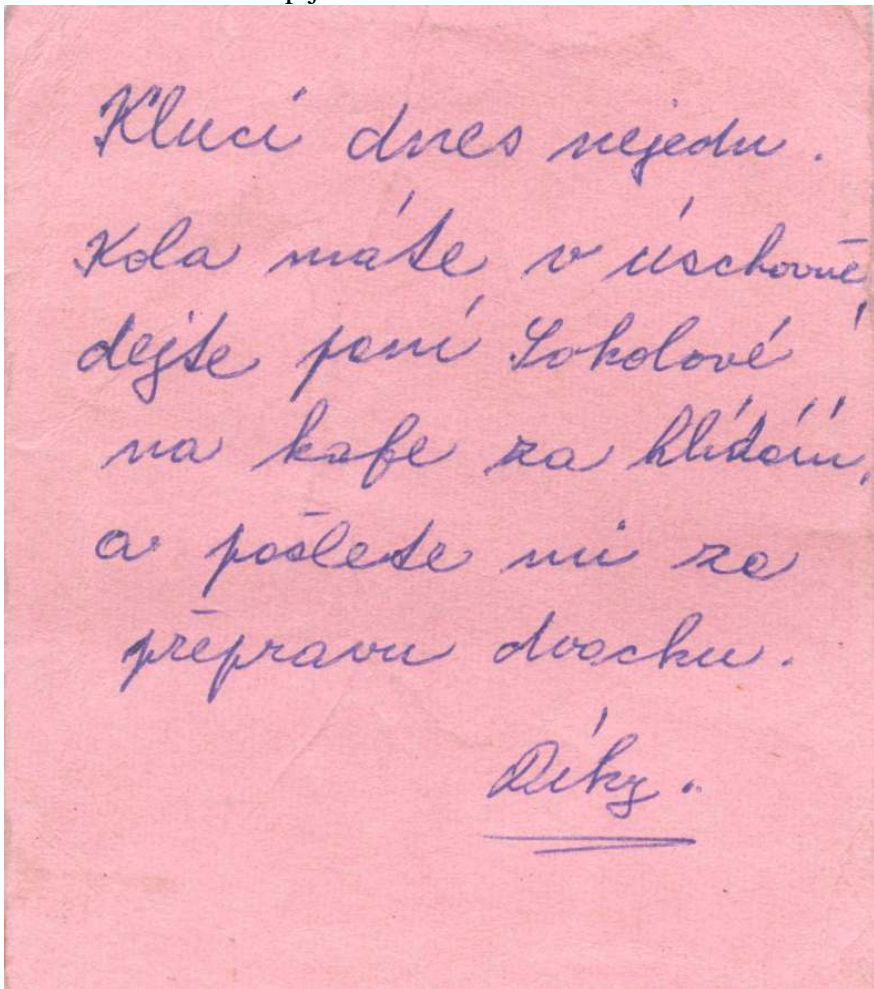 Kluci dnes nejedu.
Kola máte v úschovně,
dejte paní Sokolové
na kafe za hlídání,
a pošlete mi za
přepravu dvacku.
Díky.